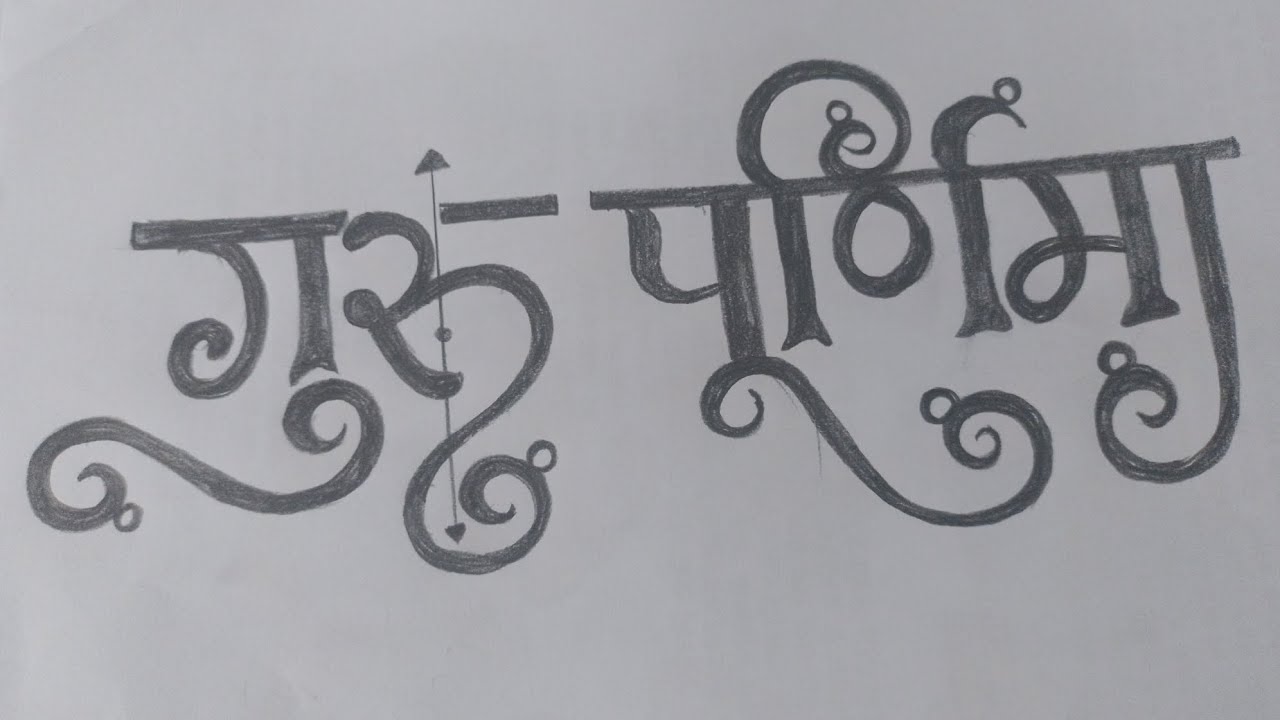 गुरु पूर्णिमा